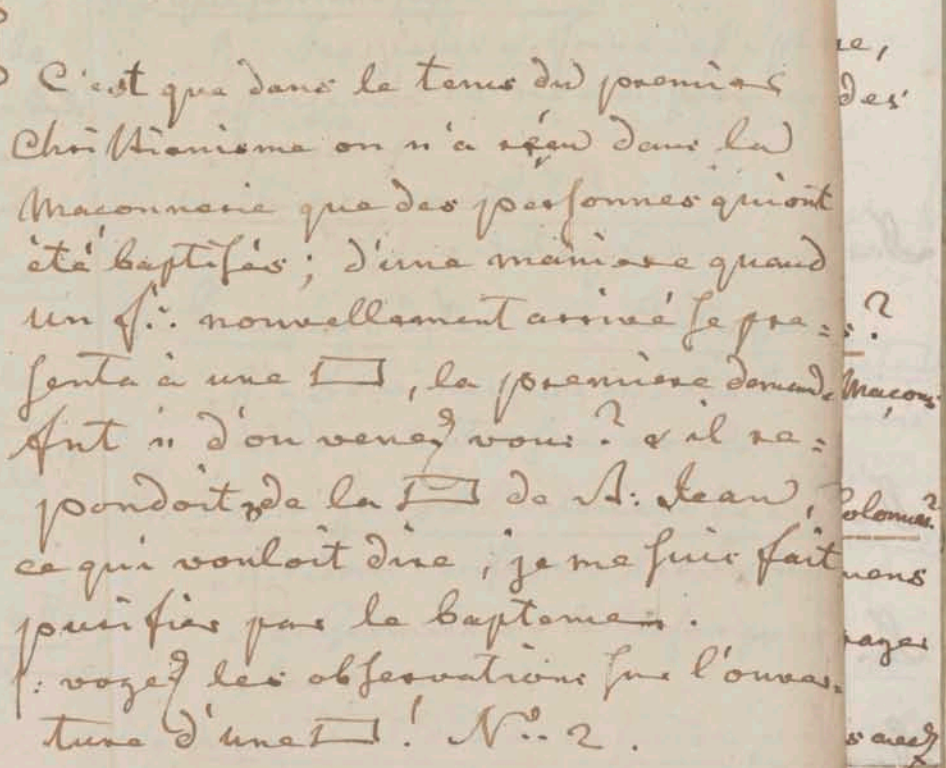 C'est que dans le tems du premier
Christianisme on n'a réçu dans la
Maconnerie que des personnes qui ont
été baptisés ; d'une maniere quand
un f∴ nouvellement arrivé se pre=
senta à une ▭, la première demande
fut " d'ou venez vous ? & il re=
pondoit, de la ▭ de St: Jean,
ce qui vouloit dire, je me suis fait
purifier par le bapteme.
f: voyez les observations sur l'ouver=
ture d'une ▭ ! No.. 2.
des
?
Maçons
olomnes?
mens